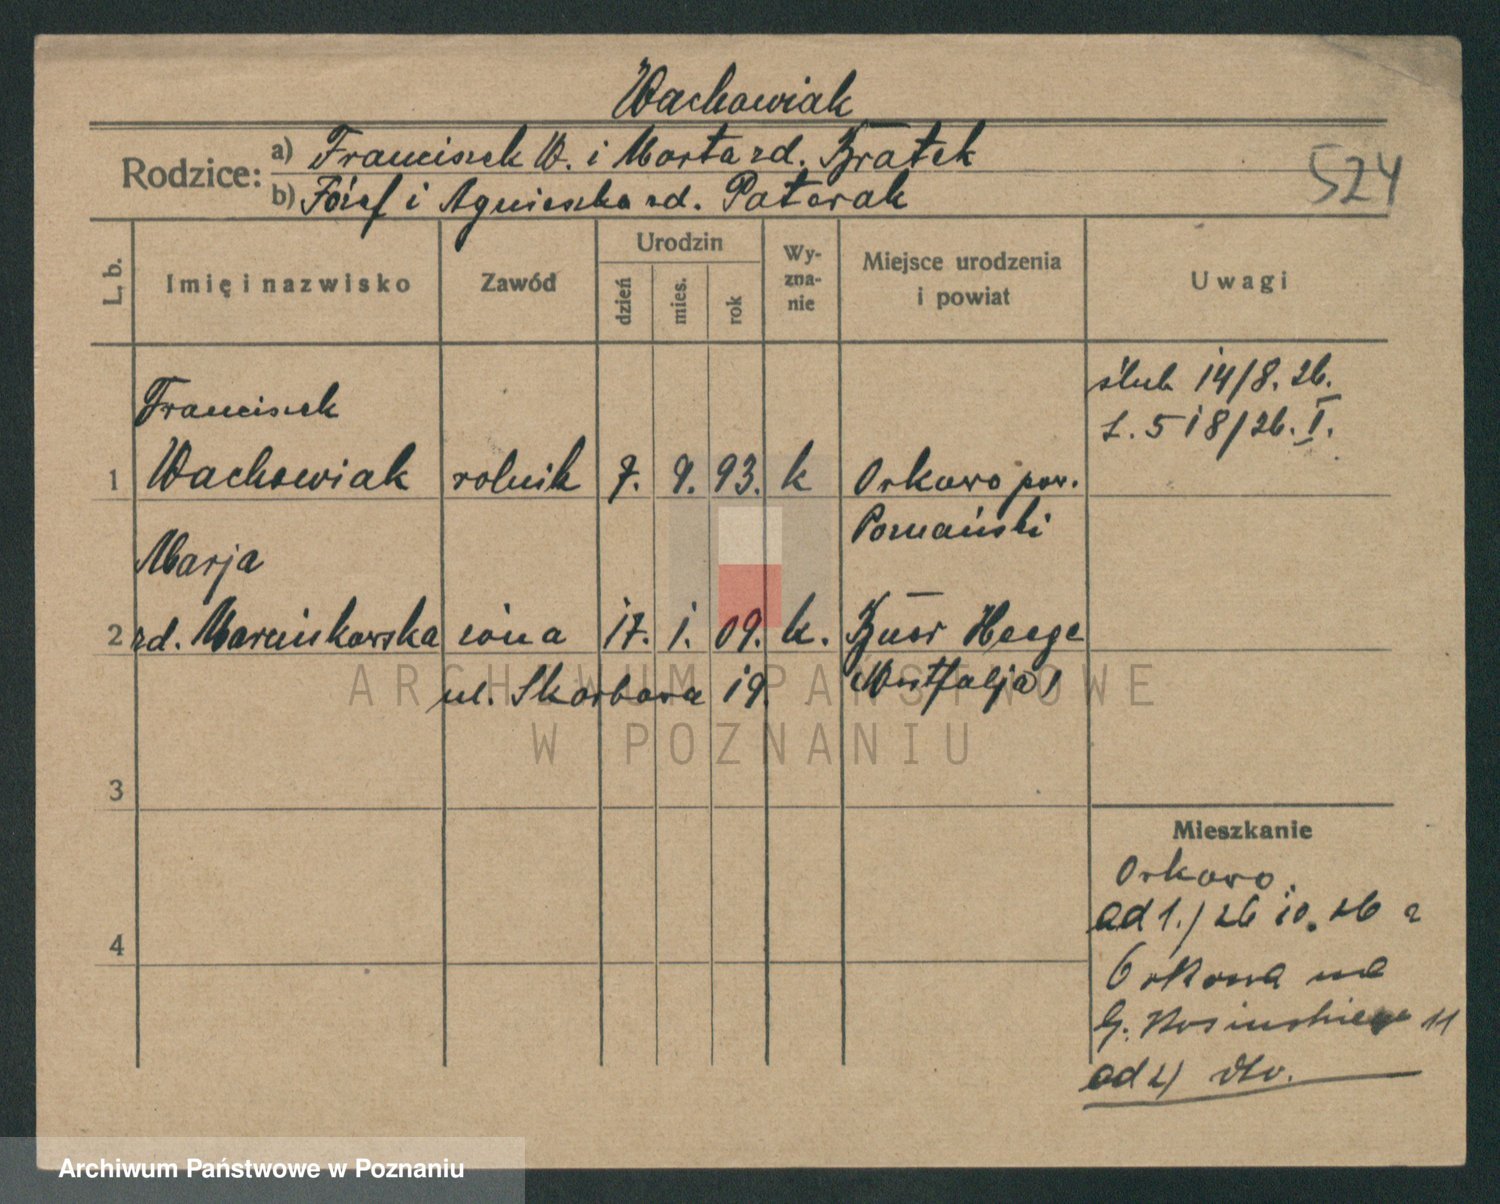 Wachowiak
Rodzice: a) Franciszek W. i Marta zd. Bratek
b) Józef i Agnieszka zd. Patorak
524
L. b.
Imię i nazwisko
Zawód
Urodzin
dzień mies. rok
Wy-
zna-
nie
Miejsce urodzenia
i powiat
Uwagi
Franciszek
1 Wachowiak rolnik 7. 9. 93. k Orkowo pow.
Poznański
ślub 14/8. 26.
L. 518/26. I.
Marja
2 zd. Marcinkowska żona 17. 1. 09. k. Buer Heege
(Westfalja)
ul. Skarbowa 19.
3
4
Mieszkanie
Orkowo.
ad 1./ 26 10. 26 z
Orkowa na
G. Kosińskiego 11
ad 2/ dto.
ARCHIWUM PAŃSTWOWE
W POZNANIU
Archiwum Państwowe w Poznaniu